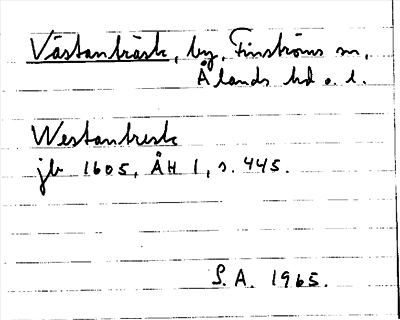 Västanträsk, by, Finströms sn,
Ålands hd o. l.
Westantresk
jb 1605, ÅH 1, s. 445.
S. A. 1965.